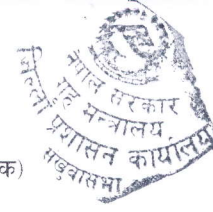 नेपाल सरकार
गृह मन्त्रालय
जिल्ला प्रशासन कार्यालय
संखुवासभा
क)